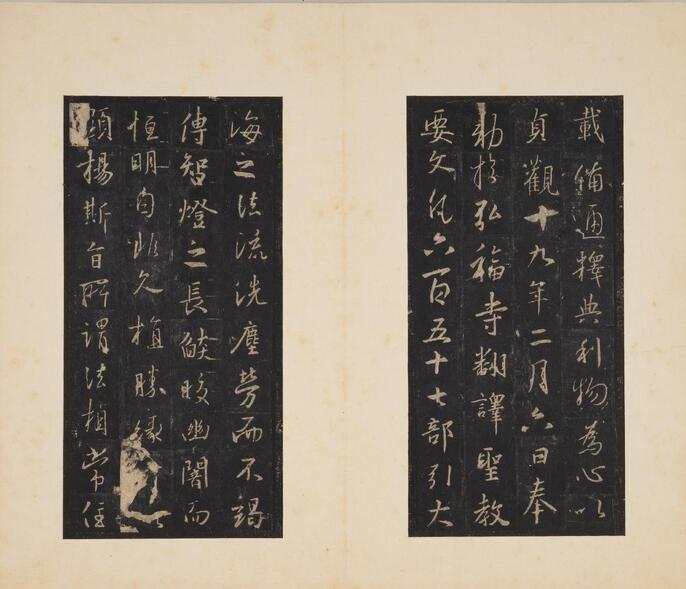 載備通釋典利物為心以
貞觀十九年二月六日奉
勅於弘福寺翻譯聖教
要文凡六百五十七部引大
海之法流洗塵勞而不竭
傳智燈之長焰皎幽闇而
恒明自非久植勝緣以
顯揚斯旨所謂法相常住